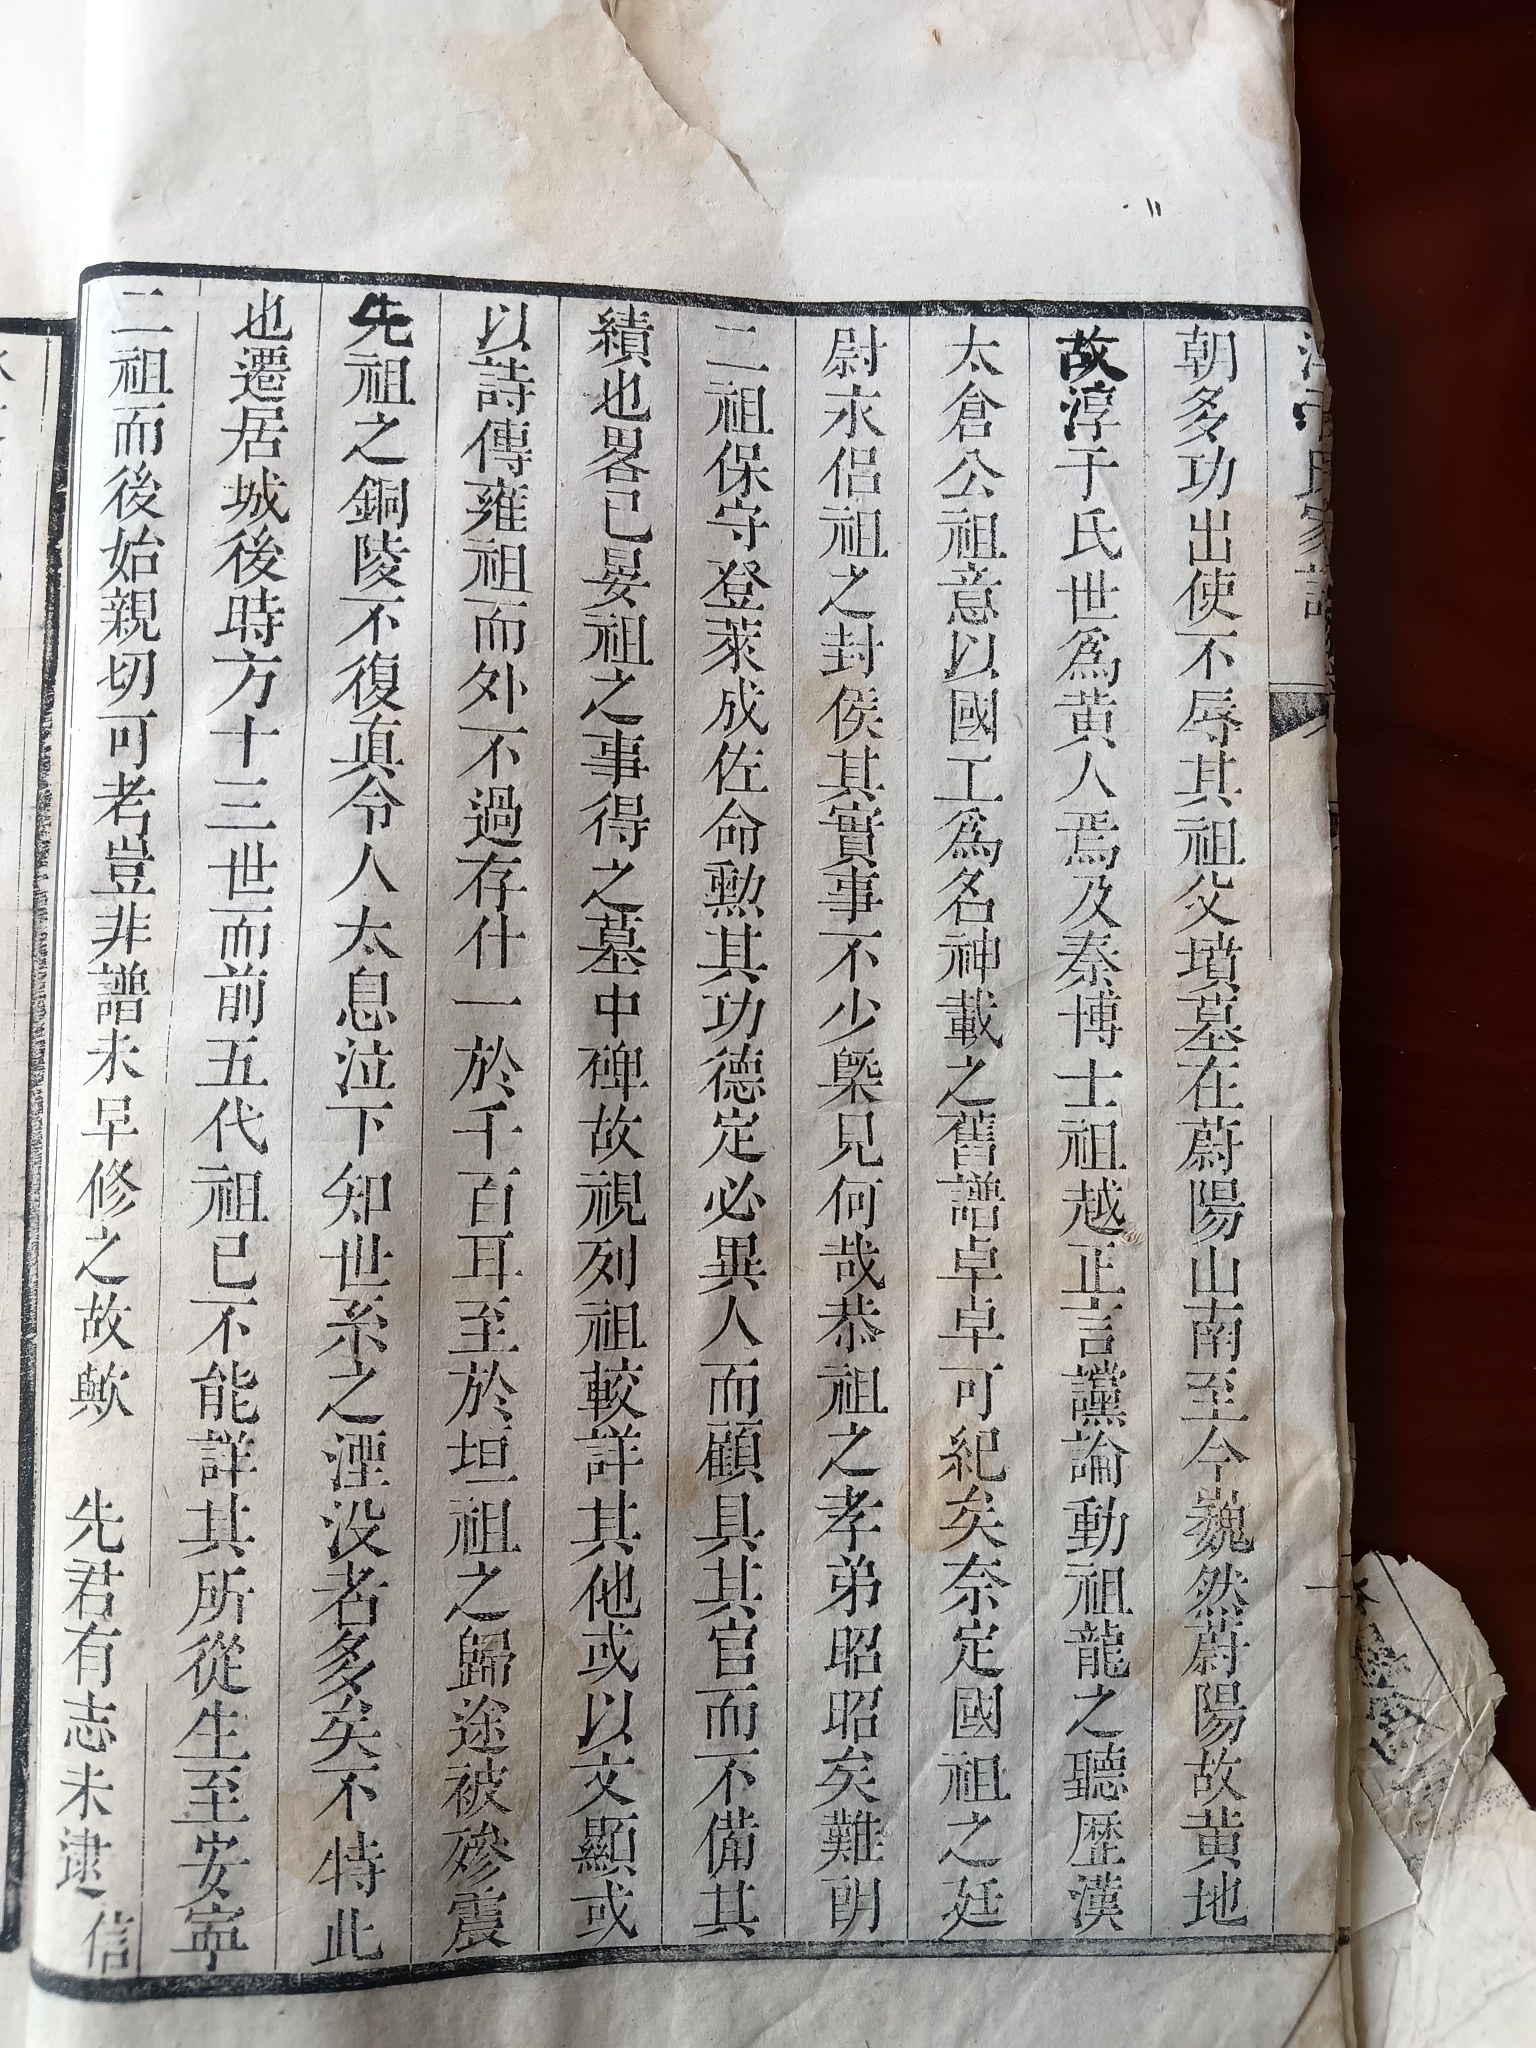 朝多功出使不辱其祖父墳墓在蔚陽山南至今巍然蔚陽故黄地
故淳于氏世爲黄人焉及秦博士祖越正言讜論動祖龍之聽歷漢
太倉公祖意以國工爲名神載之舊譜卓卓可紀矣奈定國祖之廷
尉永侶祖之封侯其實事不少槩見何哉恭祖之孝弟昭昭矣難朗
二祖保守登萊成佐命勲其功德定必異人而顧具其官而不備其
績也畧已晏祖之事得之墓中碑故視列祖較詳其他或以文顯或
以詩傳雍祖而外不過存什一於千百耳至於坦祖之歸途被殄震
先祖之銅陵不復眞令人太息泣下知世系之湮没者多矣不特此
也遷居城後時方十三世而前五代祖已不能詳其所從生至安寧
二祖而後始親切可考豈非譜未早修之故歟　先君有志未逮信